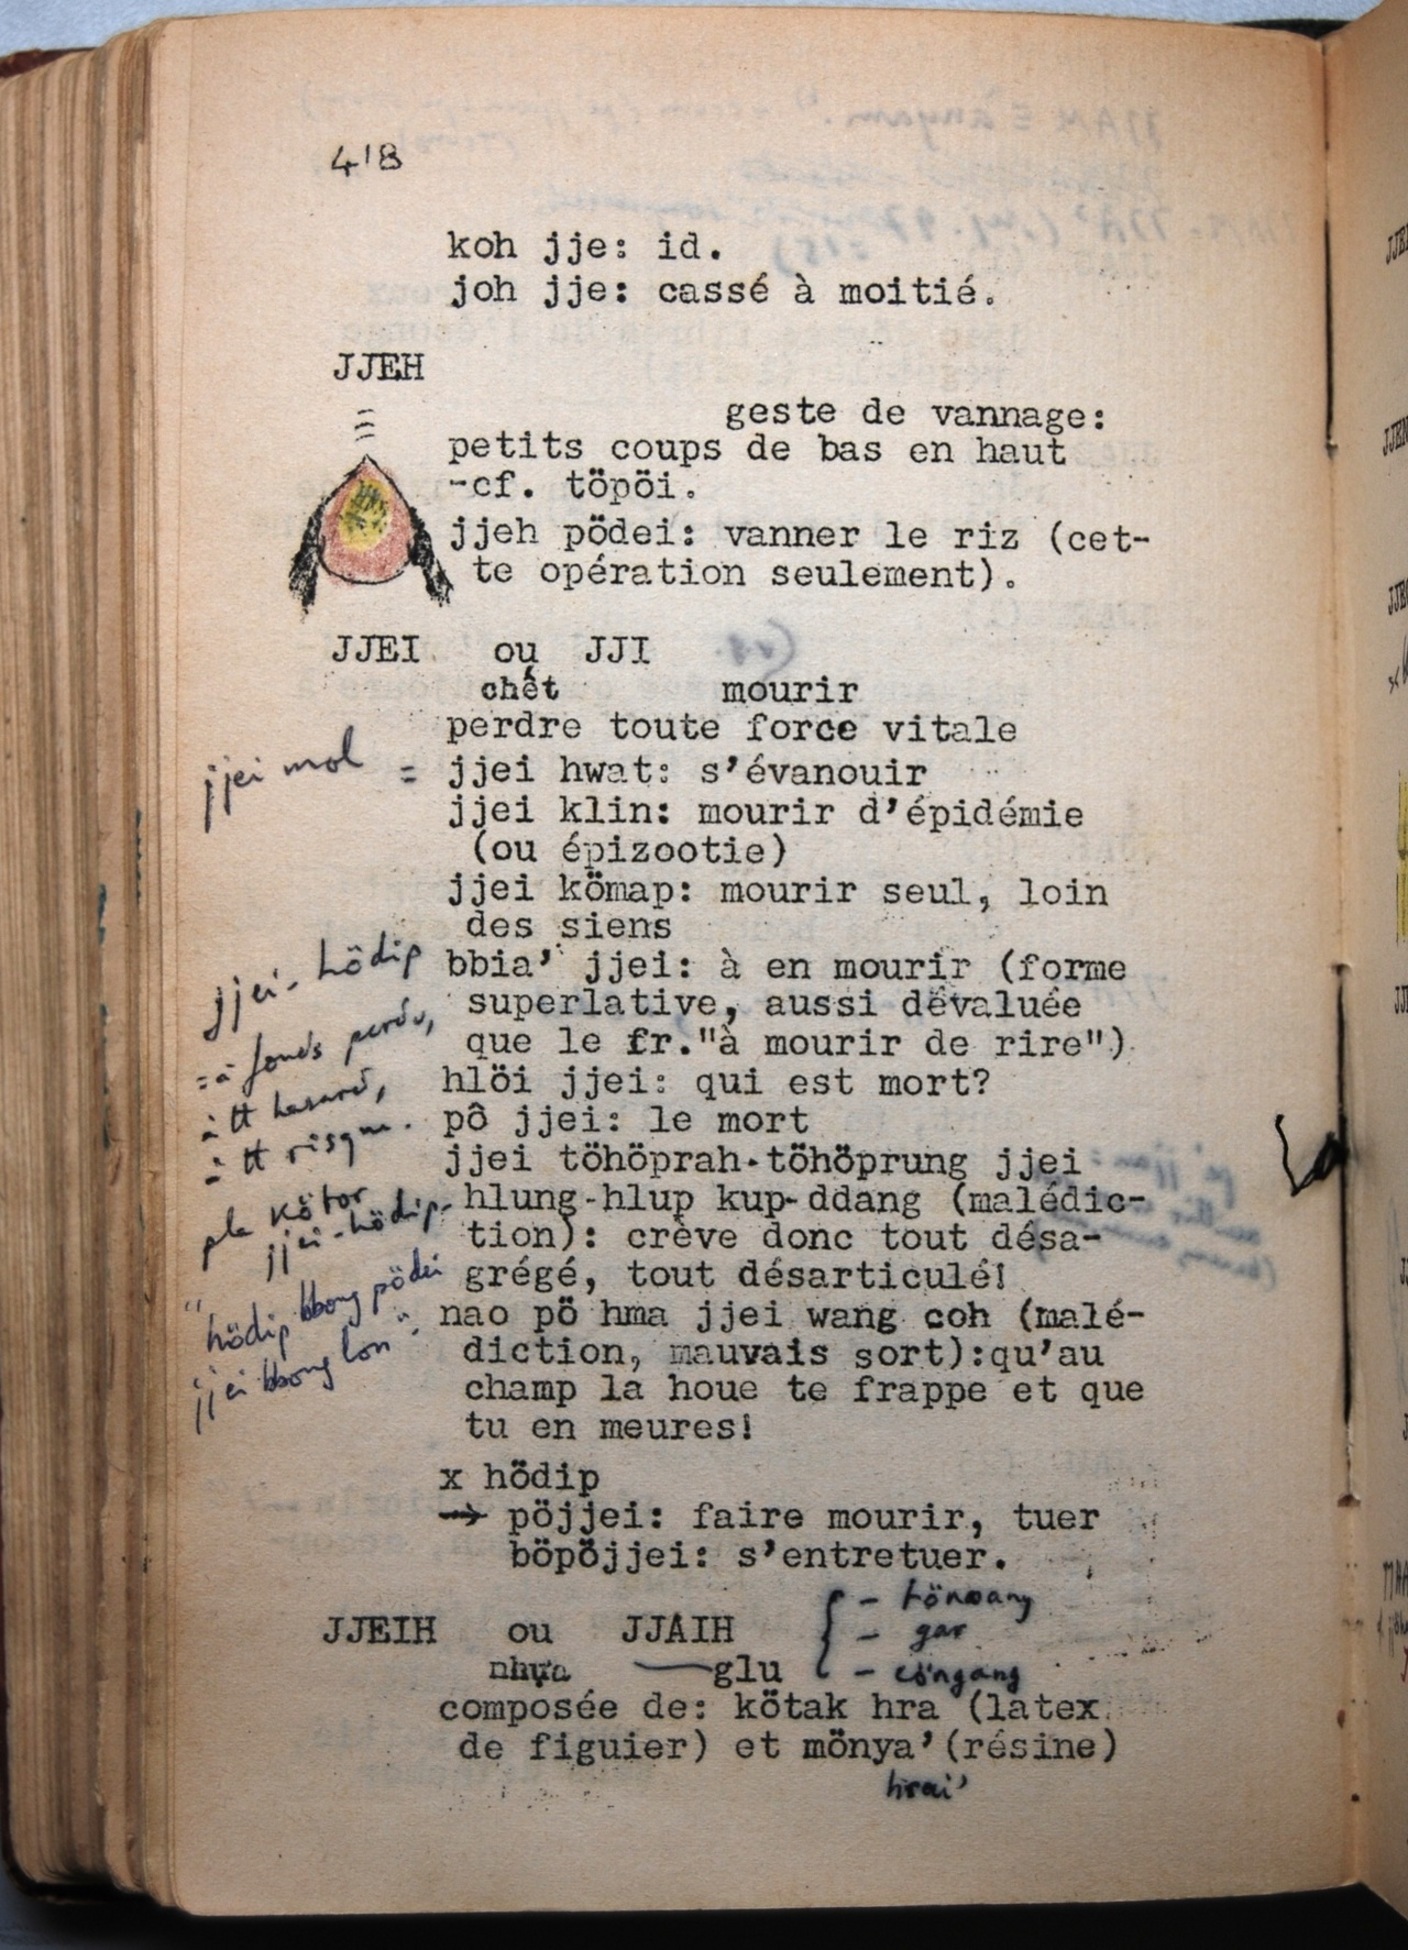 418
koh jje: id.
joh jje: cassé à moitié.
JJEH
geste de vannage:
petits coups de bas en haut
-cf. töpöi.
jjeh pödei: vanner le riz (cet-
te opération seulement).
JJEI ou JJI
chết mourir
perdre toute force vitale
jjei mol = jjei hwat: s'évanouir
jjei klin: mourir d'épidémie
(ou épizootie)
jjei kömap: mourir seul, loin
des siens
bbia' jjei: à en mourir (forme
superlative, aussi dévaluée
que le fr."à mourir de rire")
hlöi jjei: qui est mort?
pô jjei: le mort
jjei töhöprah-töhöprung jjei
hlung-hlup kup-ddang (malédic-
tion): crève donc tout désa-
grégé, tout désarticulé!
nao pö hma jjei wang coh (malé-
diction, mauvais sort):qu'au
champ la houe te frappe et que
tu en meures!
x hödip
→ pöjjei: faire mourir, tuer
böpöjjei: s'entretuer.
jjei-hödip
= à fonds perdu,
à tt hasard,
à tt risque.
ple kötor
jjei-hödip-
"hödip bbong pödei
jjei bbong lon".
JJEIH ou JJAIH
nhựa — glu
{ -
- gar
-
composée de: kötak hra (latex
de figuier) et mönya' (résine)
hrai'